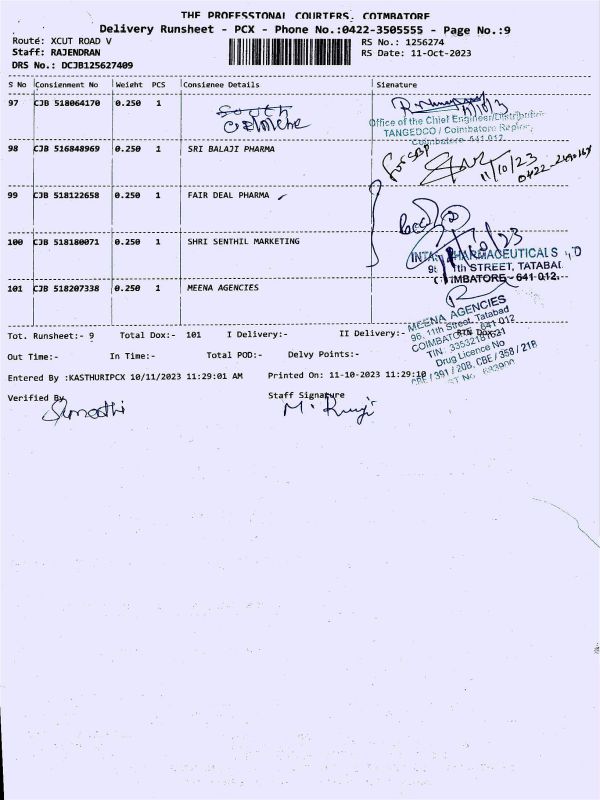 THE PROFESSTONAL COURTERS. COTMBATORE
Delivery Runsheet - PCX - Phone No.:0422-3505555 - Page No.:9
Route: XCUT ROAD V
RS No.: 1256274
Staff: RAJENDRAN
RS Date: 11-Oct-2023
DRS No.: DCJB125627409
S No Consignment No Weight PCS Consignee Details Signature
97 CJB 518064170 0.250 1
South
Office of the Chief Engineer/Distribution
TANGEDCO / Coimbatore Region
Coimbatore-641 012
98 CJB 516848969 0.250 1 SRI BALAJI PHARMA
11/10/23
99 CJB 518122658 0.250 1 FAIR DEAL PHARMA
100 CJB 518180071 0.250 1 SHRI SENTHIL MARKETING
PHARMACEUTICALS
11th STREET, TATABAD
COIMBATORE-641 012.
101 CJB 518207338 0.250 1 MEENA AGENCIES
MEENA AGENCIES
96, 11th Street, Tatabad
COIMBATORE - 641 012
Tot. Runsheet:- 9 Total Dox:- 101 I Delivery:- II Delivery:-
Drug Licence No
CBE / 391 / 20B, CBE / 358 / 21B
Out Time:- In Time:- Total POD:- Delvy Points:-
Entered By :KASTHURIPCX 10/11/2023 11:29:01 AM Printed On: 11-10-2023 11:29:10
Verified By
Staff Signature